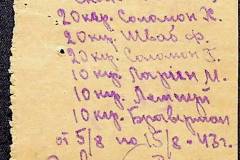 20 кар. Соломон К.
20 кар. Шваб Ф.
20 кар. Соломон Г.
10 кар. Ларин М.
10 кар.
10 кар. Браверман
от 5/8 по 15/8-43 г.